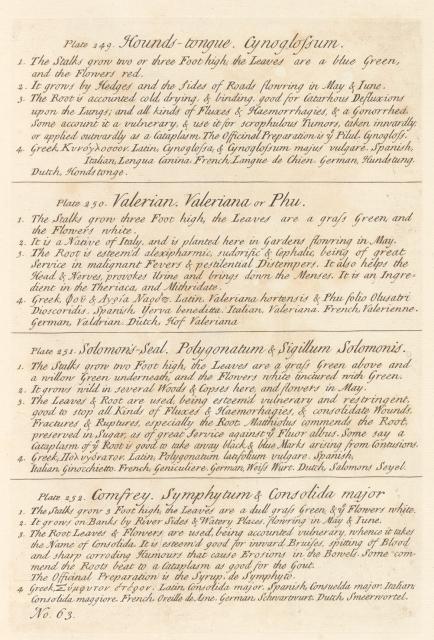 Plate 249. Hounds-tongue. Cynoglossum.
1. The Stalks grow two or three Foot high, the Leaves are a blue Green,
and the Flowers red.
2. It grows by Hedges and the Sides of Roads flowring in May & Iune.
3. The Root is accounted cold, drying, & binding, good for Catarhous Defluxions
upon the Lungs; and all kinds of Fluxes & Haemorrhagies, & a Gonorrhea.
Some account it a vulnerary, & use it for scrophulous Tumors, taken inwardly
or applied outwardly as a Cataplasm. The Officinal Preparation is ẏ Pilul. Cynogloss.
4. Greek, Latin, Cynoglossa, & Cynoglossum majus vulgare. Spanish,
Italian, Lengua Canina. French, Langue de Chien. German, Hundszung.
Dutch, Hondstonge.
Plate 250. Valerian. Valeriana or Phu.
1. The Stalks grow three Foot high, the Leaves are a grass Green, and
the Flowers white.
2. It is a Native of Italy, and is planted here in Gardens flowring in May.
3. The Root is esteem'd alexipharmic, sudorific & cephalic, being of great
Service in malignant Fevers & pestilential Distempers. It also helps the
Head & Nerves, provokes Urine and brings down the Menses. It is an Ingre-
dient in the Theriaca, and Mithridate.
4. Greek, Φοῦ & Latin, Valeriana hortensis & Phu folio Olusatri
Dioscoridis. Spanish, Yerva beneditta. Italian, Valeriana. French, Valerienne.
German, Valdrian. Dutch, Hof Valeriana
Plate 251. Solomon's-Seal. Polygonatum & Sigillum Solomonis.
1. The Stalks grow two Foot high, the Leaves are a grass Green above and
a willow Green underneath, and the Flowers white tinctured with Green.
2. It grows wild in several Woods & Copses here, and flowers in May.
3. The Leaves & Root are used, being esteem'd vulnerary and restringent,
good to stop all Kinds of Fluxes & Haemorhagies, & consolidate Wounds,
Fractures & Ruptures, especially the Root. Matthiolus commends the Root,
preserved in Sugar, as of great Service against ẏ Fluor albus. Some say a
Cataplasm of ẏ Root is good to take away black & blue Marks arising from Contusions.
4. Greek, Πολυγόνατον. Latin, Polygonatum latifolium vulgare. Spanish,
Italian, Ginocchietto. French, Geniculiere. German, Weiss Wurt. Dutch, Salomons Seyel.
Plate 252. Comfrey. Symphytum & Consolida major
1. The Stalks grow 3 Foot high, the Leaves are a dull grass Green, & ẏ Flowers white.
2. It grows on Banks by River Sides & Watery Places, flowring in May & Iune.
3. The Root, Leaves & Flowers are used, being accounted vulnerary, whence it takes
the Name of Consolida. It is esteem'd good for inward Bruises, spitting of Blood
and sharp corroding Humours that cause Erosions in the Bowels. Some com-
mend the Roots beat to a Cataplasm as good for the Gout.
The Officinal Preparation is the Syrup. de Symphyto.
4. Greek, Σύμφυτον Latin, Consolida major. Spanish, Consuelda major. Italian
Consolida maggiore. French, Oreille de Asne. German, Schwartwurt. Dutch, Smeerwortel.
No. 63.